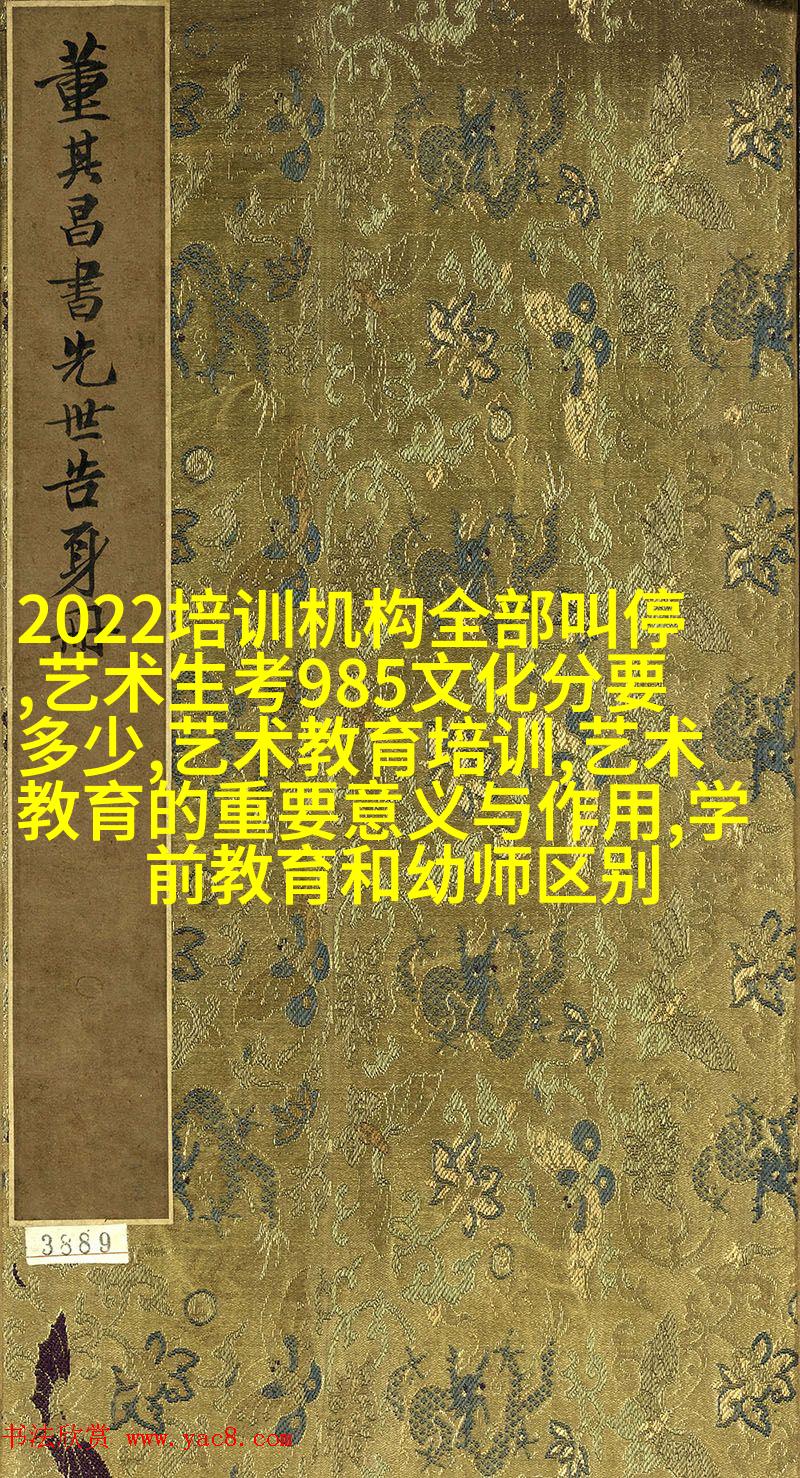 董其昌書先世告身冊
2022培训机构全部叫停
,艺术生考985文化分要
多少,艺术教育培训,艺术
教育的重要意义与作用,学
前教育和幼师区别
3889
书法欣赏 www.yac8.com